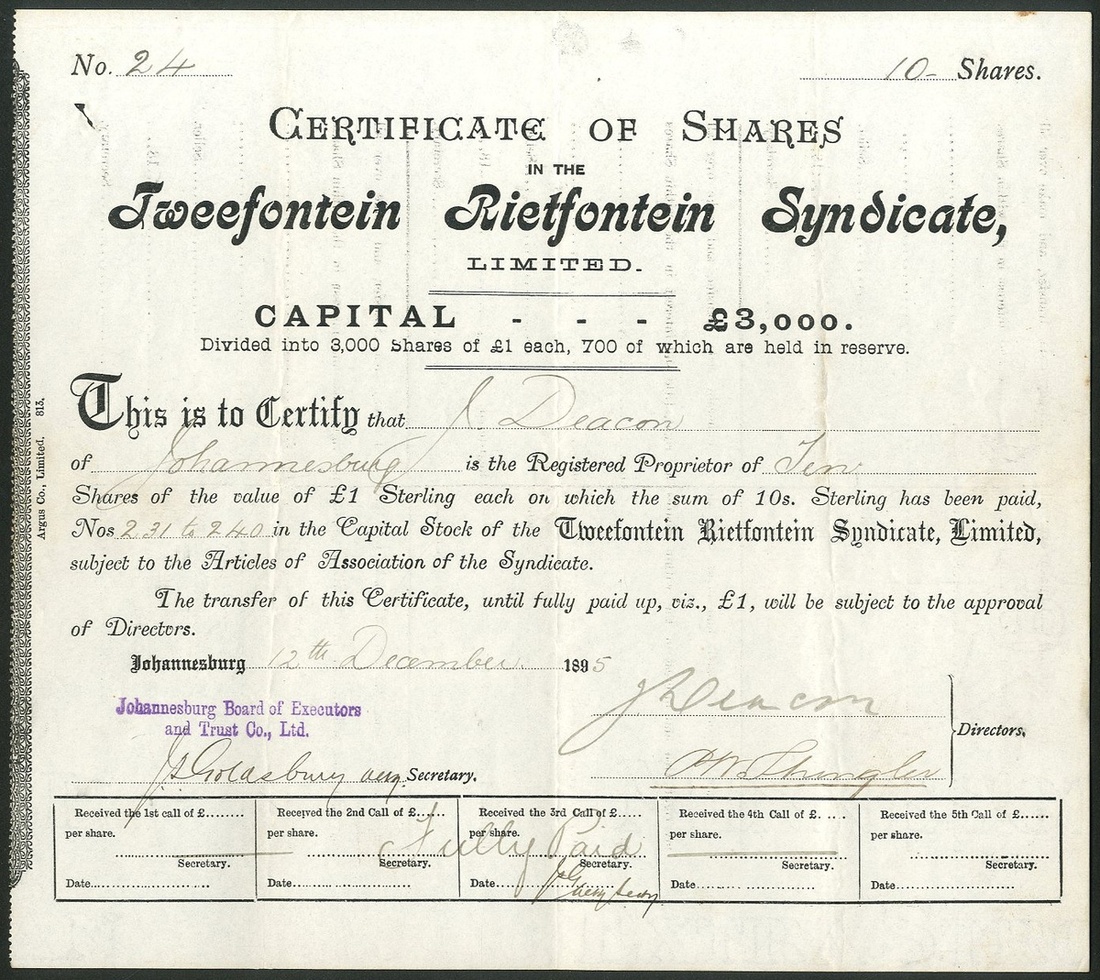 No. 24 10- Shares.
CERTIFICATE OF SHARES
IN THE
Tweefontein Rietfontein Syndicate,
LIMITED.
CAPITAL - - - £3,000.
Divided into 3,000 Shares of £1 each, 700 of which are held in reserve.
This is to Certify that J Deacon
of Johannesburg is the Registered Proprietor of Ten
Shares of the value of £1 Sterling each on which the sum of 10s. Sterling has been paid,
Nos 231 to 240 in the Capital Stock of the Tweefontein Rietfontein Syndicate, Limited,
subject to the Articles of Association of the Syndicate.
The transfer of this Certificate, until fully paid up, viz., £1, will be subject to the approval
of Directors.
Johannesburg 12th December 1895
Johannesburg Board of Executors
and Trust Co., Ltd.
J Deacon
Directors.
Goldsbury Secretary.
Shingler
Received the 1st call of £........ Received the 2nd Call of £...... Received the 3rd Call of £..... Received the 4th Call of £..... Received the 5th Call of £......
per share. per share. per share. per share. per share.
Fully Paid
Secretary. Secretary. Secretary. Secretary. Secretary.
Date Date Date Date Date
Argus Co., Limited. 813.